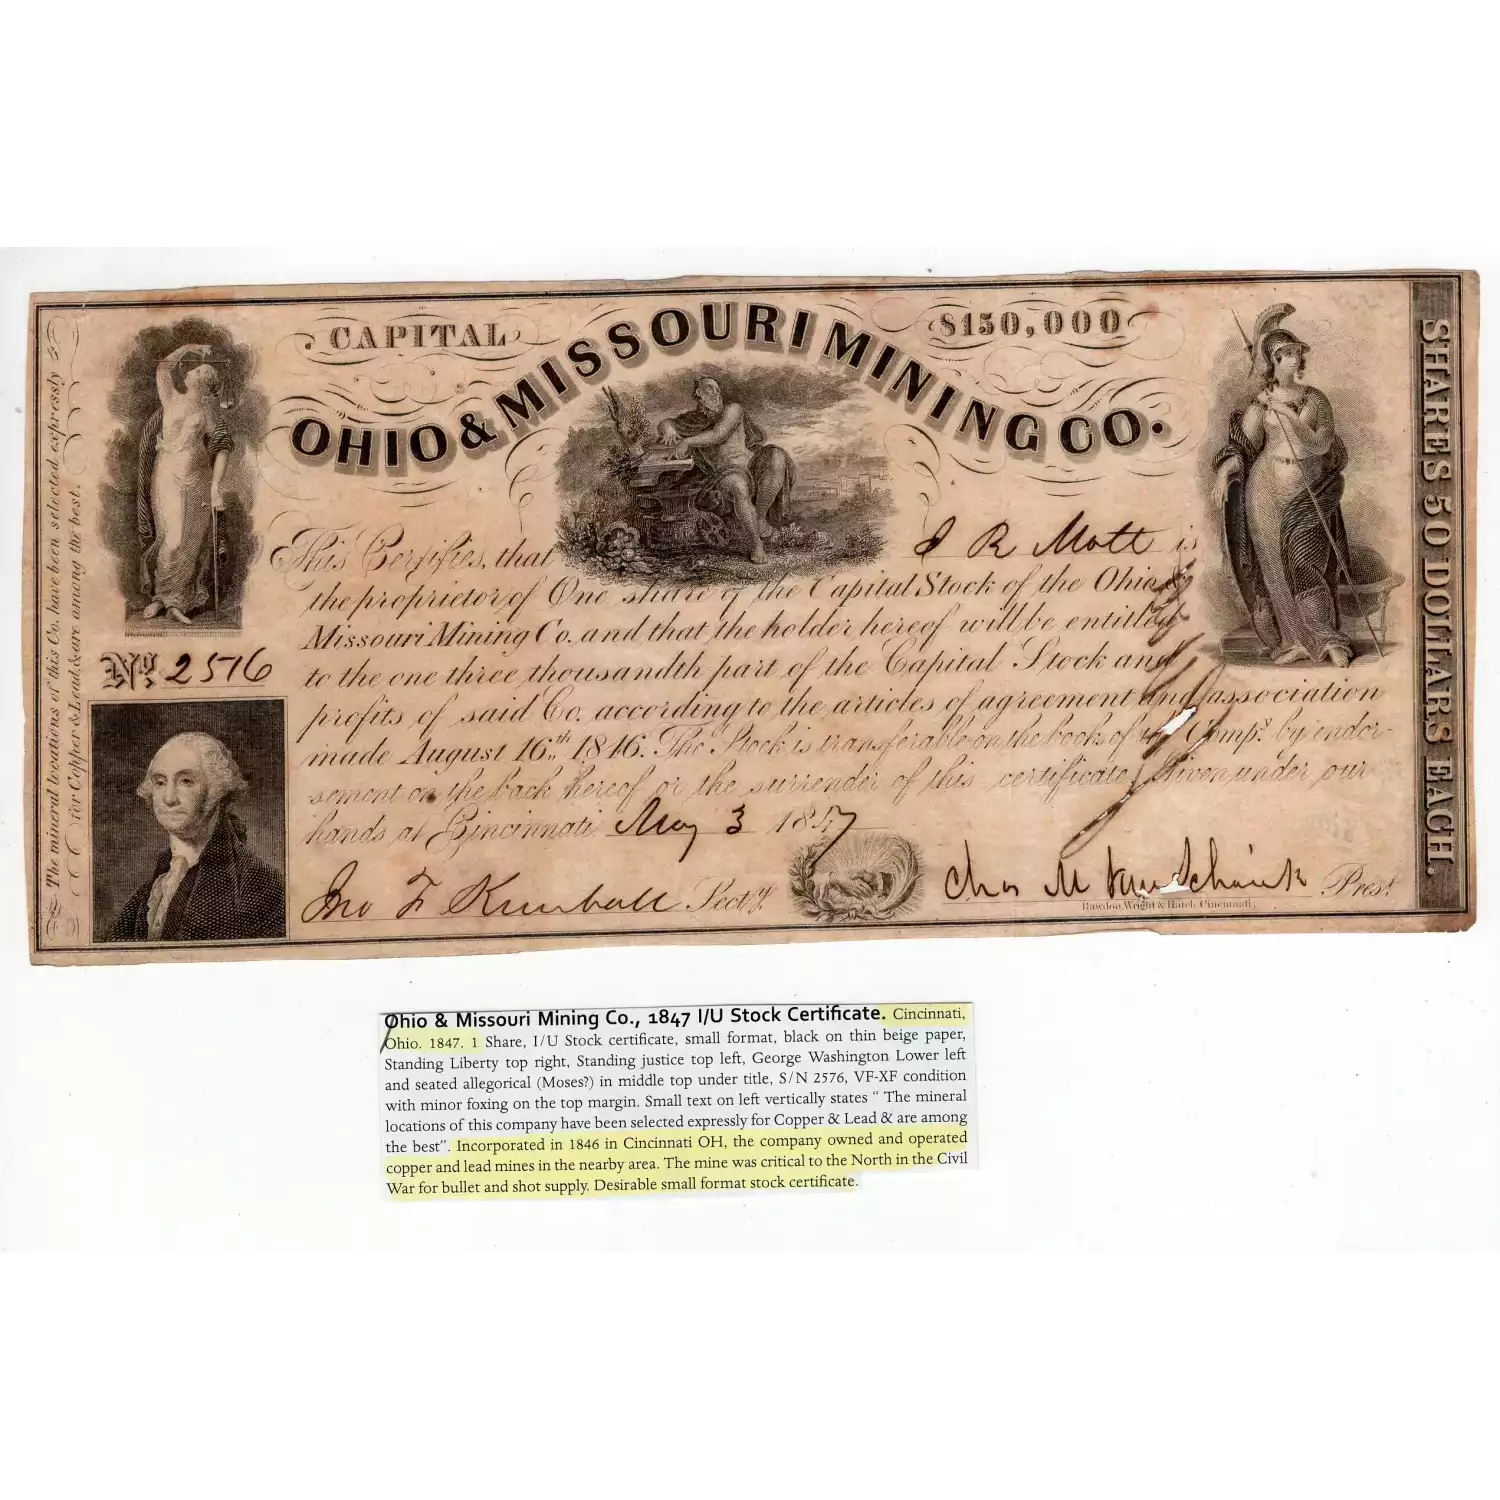 CAPITAL $150,000
OHIO & MISSOURI MINING CO.
This Certifies, that J R Mott is
the proprietor of One share of the Capital Stock of the Ohio &
Missouri Mining Co. and that the holder hereof will be entitled
to the one three thousandth part of the Capital Stock and
profits of said Co. according to the articles of agreement and association
made August 16th 1846. The Stock is transferable on the books of the Compy. by endor-
sement on the back hereof or the surrender of this certificate. Given under our
hands at Cincinnati May 3 1847
Jno F Kimball Secty. Chas M Van Schaick Prest.
Rawdon Wright & Hatch Cincinnati.
No. 2576
The mineral locations of this Co. have been selected expressly
for Copper & Lead & are among the best.
SHARES 50 DOLLARS EACH.
Ohio & Missouri Mining Co., 1847 I/U Stock Certificate. Cincinnati,
Ohio. 1847. 1 Share, I/U Stock certificate, small format, black on thin beige paper,
Standing Liberty top right, Standing justice top left, George Washington Lower left
and seated allegorical (Moses?) in middle top under title, S/N 2576, VF-XF condition
with minor foxing on the top margin. Small text on left vertically states “ The mineral
locations of this company have been selected expressly for Copper & Lead & are among
the best”. Incorporated in 1846 in Cincinnati OH, the company owned and operated
copper and lead mines in the nearby area. The mine was critical to the North in the Civil
War for bullet and shot supply. Desirable small format stock certificate.